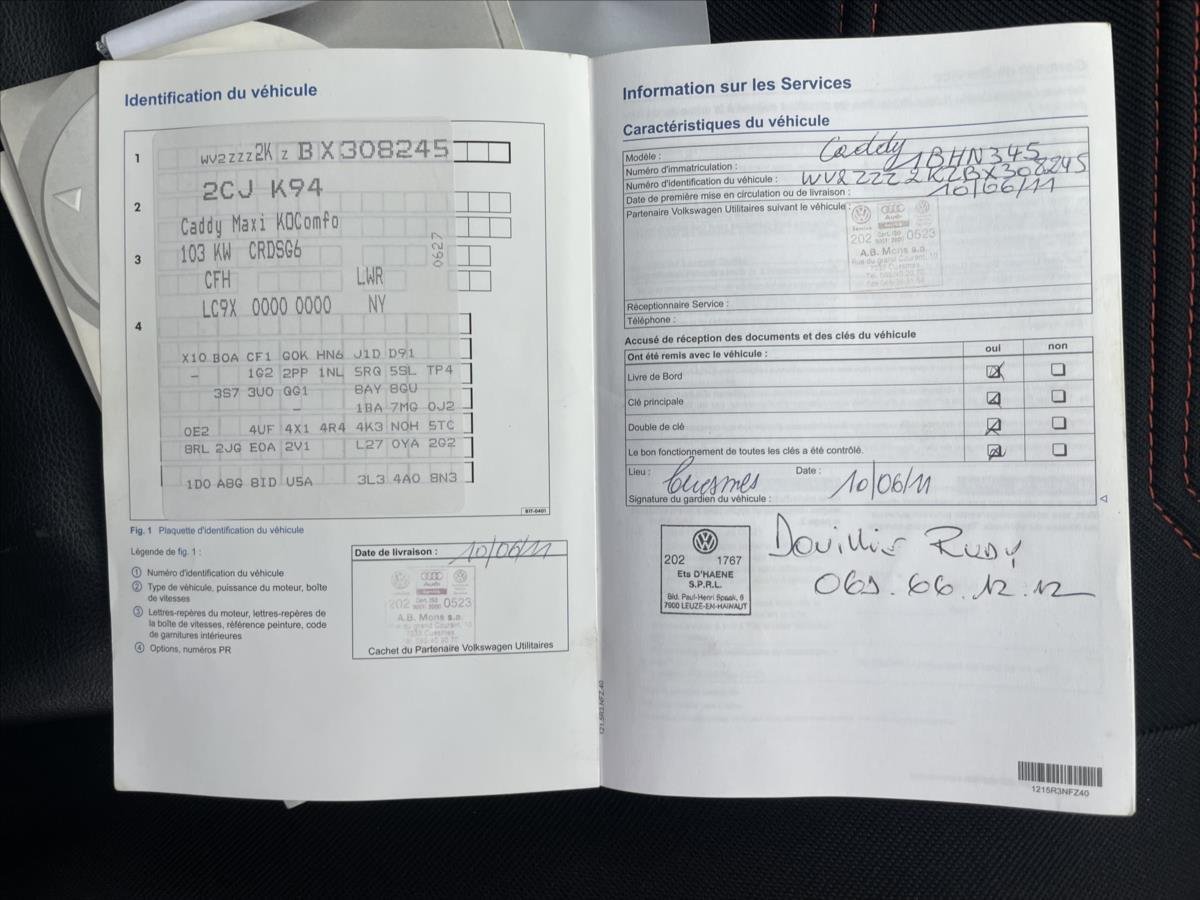 Identification du véhicule
1
WV2ZZZ2KZBX308245
2CJ K94
2
Caddy Maxi KOComfo
103 KW CRDSG6
0627
3
CFH LWR
LC9X 0000 0000 NY
4
X10 BOA CF1 GOK HN6 J1D D91
- 1G2 2PP 1NL 5RQ 5SL TP4
3S7 3U0 QG1 BAY 8GU
- 1BA 7MG 0J2
0E2 4UF 4X1 4R4 4K3 NOH 5TC
8RL 2JG E0A 2V1 L27 0YA 2G2
1D0 A8G 8ID U5A 3L3 4A0 8N3
B1T-0401
Fig. 1 Plaquette d'identification du véhicule
Légende de fig. 1 :
① Numéro d'identification du véhicule
② Type de véhicule, puissance du moteur, boîte
de vitesses
③ Lettres-repères du moteur, lettres-repères de
la boîte de vitesses, référence peinture, code
de garnitures intérieures
④ Options, numéros PR
Date de livraison : 10/06/11
202 0523
A.B. Mons s.a.
Rue du grand Courant, 10
7033 Cuesmes
Cachet du Partenaire Volkswagen Utilitaires
121.5R3.NFZ.40
Information sur les Services
Caractéristiques du véhicule
Modèle : Caddy
Numéro d'immatriculation : 1BHN345
Numéro d'identification du véhicule : WV2ZZZ2KZBX308245
Date de première mise en circulation ou de livraison : 10/06/11
Partenaire Volkswagen Utilitaires suivant le véhicule :
Service Audi Service
202 Cert. ISO 9001: 2000 0523
A.B. Mons s.a.
Rue du grand Courant, 10
7033 Cuesmes
Réceptionnaire Service :
Téléphone :
Accusé de réception des documents et des clés du véhicule
Ont été remis avec le véhicule : oui non
Livre de Bord
Clé principale
Double de clé
Le bon fonctionnement de toutes les clés a été contrôlé.
Lieu : Cuesmes Date : 10/06/11
Signature du gardien du véhicule :
202 1767
Ets D'HAENE
S.P.R.L.
Bld. Paul-Henri Spaak, 6
7900 LEUZE-EN-HAINAUT
Douillie Rudy
069.66.12.12
1215R3NFZ40